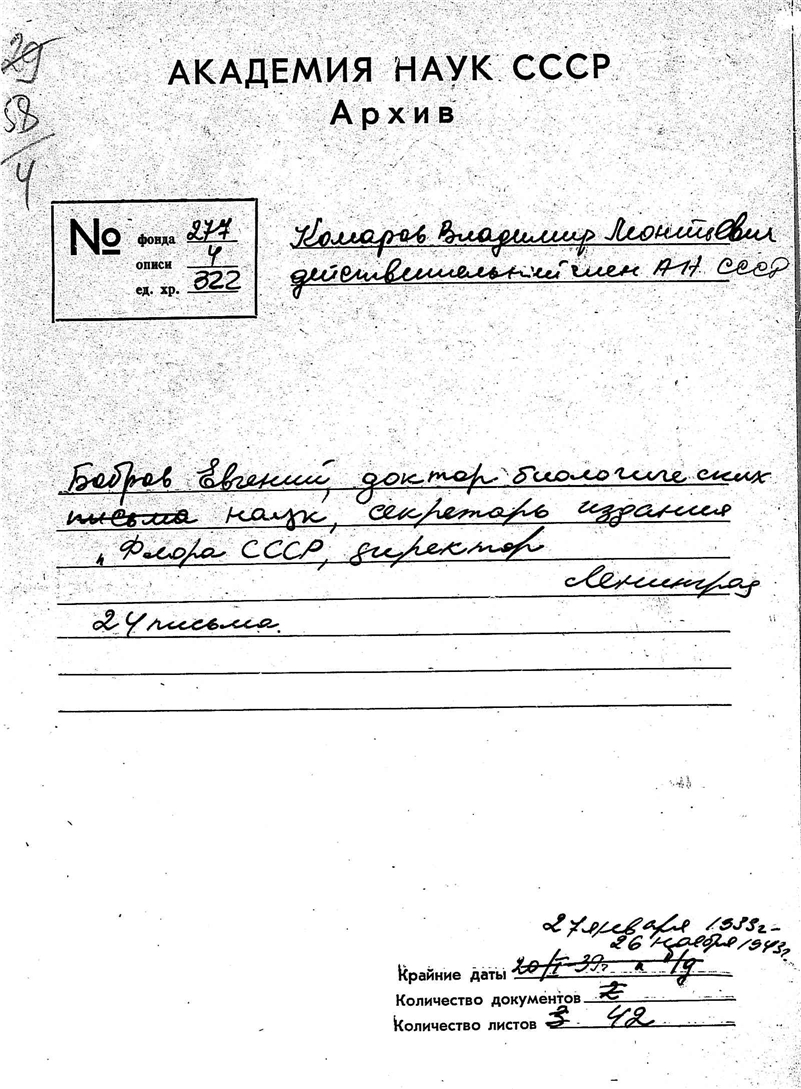 29
58
4
АКАДЕМИЯ НАУК СССР
Архив
№ фонда 277
описи 4
ед. хр. 322
Комаров Владимир Леонтьевич
действительный член АН СССР
Бобров Евгений, доктор биологических
письма наук, секретарь издания
„Флора СССР, директор
Ленинград
24 письма.
27 января 1933г-
26 ноября 1943г.
Крайние даты 20/I-39г. и б/д
Количество документов 2
Количество листов 3 42